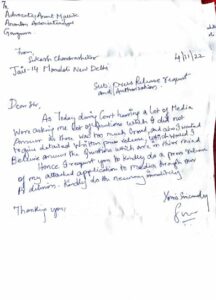 To
Advocate Anant Malik
Gurugram
From
Sukash Chandrashekar
Jail-14 Mandoli New Delhi
4/11/22
Sub: Press Release request
and Authorisation.
Dear Sir,
As Today during Court having a lot of Media
were asking me lot of Questions which I did not
Answer as there was too much Crowd, and also I wanted
detailed written press release, which would
answer the Questions which are in their mind
Hence I request you to kindly do a press release
of my attached application to Media through our
Kindly do the necessary immediately
Thanking you,
Yours Sincerely